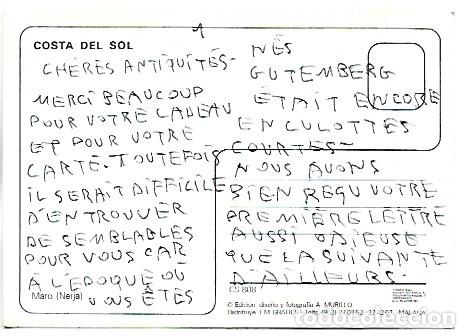 1
COSTA DEL SOL
CHÈRES ANTIQUITÉS-
MERCI BEAUCOUP
POUR VOTRE CADEAU
ET POUR VOTRE
CARTE. TOUTEFOIS
IL SERAIT DIFFICILE
D'EN TROUVER
DE SEMBLABLES
POUR VOUS CAR
À L'ÉPOQUE OÙ
Maro (Nerja)
VOUS ÊTES
NÉS
GUTEMBERG
ÉTAIT ENCORE
EN CULOTTES
COURTES-
NOUS AVONS
BIEN REÇU VOTRE
PREMIÈRE LETTRE
AUSSI ODIEUSE
QUE LA SUIVANTE
D'AILLEURS-
CS 808
© Edición, diseño y fotografía A. MURILLO
MALAGA
todocoleccion